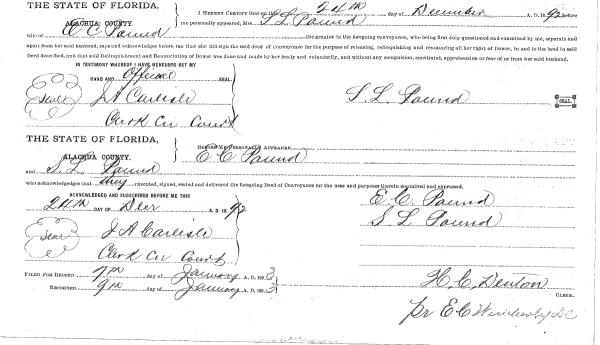 THE STATE OF FLORIDA,
ALACHUA COUNTY.
I HEREBY CERTIFY that on this 24th day of December A. D. 1892 before
me personally appeared, Mrs. S. L. Pound
wife of E C Pound the grantor in the foregoing conveyance, who being first duly questioned and examined by me, separate and
apart from her said husband, says and acknowledges before me that she did sign the said deed of Conveyance for the purpose of releasing, relinquishing and renouncing all her right of Dower, in and to the land in said
Deed described, and that said Relinquishment and Renunciation of Dower was done and made by her freely and voluntarily, and without any compulsion, constraint, apprehension or fear of or from her said husband.
IN TESTIMONY WHEREOF I HAVE HEREUNTO SET MY
HAND AND Official SEAL.
Seal J A Carlisle S. L. Pound SEAL.
Clerk Cir Court
THE STATE OF FLORIDA,
ALACHUA COUNTY.
BEFORE ME PERSONALLY APPEARED E C Pound
and S. L. Pound
who acknowledges that they executed, signed, sealed and delivered the foregoing Deed of Conveyance for the uses and purposes therein contained and expressed.
ACKNOWLEDGED AND SUBSCRIBED BEFORE ME THIS
24th DAY OF Decr A. D. 1892
E. C. Pound
S L Pound
Seal J A Carlisle
Clerk Cir Court
FILED FOR RECORD 7th day of January A. D. 1893
RECORDED 9th day of January A. D. 1893
H. C. Denton
CLERK.
pr E C DC